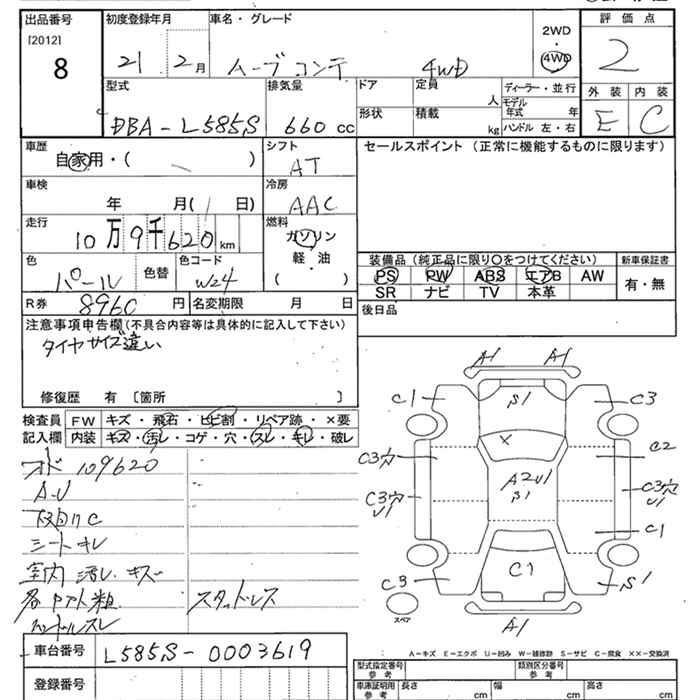 出品番号 初度登録年月 車名・グレード 2WD 評価点
[2012] 8 21 2月 ムーブコンテ 4WD 4WD 2
型式 排気量 ドア 定員 人 ディーラー・並行 外装 内装
DBA-L585S 660cc 形状 積載 kg モデル年式 年 ハンドル 左・右 E C
車歴 シフト セールスポイント (正常に機能するものに限ります)
自家用・( ) AT
車検 冷房
年 月( 日) AAC
走行 燃料
10万9千620km ガソリン 軽・油 ( )
色 色替 色コード 装備品 (純正品に限り○をつけてください) 新車保証書
パール W24 PS PW ABS エアB AW 有・無
SR ナビ TV 本革
R券 8960円 名変期限 月 日 後日品
注意事項申告欄(不具合内容等は具体的に記入して下さい)
タイヤサイズ違い
修復歴 有 [箇所 ]
検査員 FW キズ・飛石・ヒビ割・リペア跡・×要
記入欄 内装 キズ・汚レ・コゲ・穴・スレ・キレ・破レ
オド 109620
A・U
下回りC
シートキレ
室内 汚レ、キズ
スタッドレス
ハンドルスレ
A1 A1
C1 S1 C3
X
C3穴 C2
C3穴 U1 A2U1 S1 C3穴 U1
C1
C3 C1 S1
スペア
A1
A-キズ E-エクボ U-凹み W-補修跡 S-サビ C-腐食 XX-交換済
車台番号 L585S-0003619
登録番号
型式指定番号 参考 類別区分番号 参考
車庫証明用 参考 長さ cm 幅 cm 高さ cm